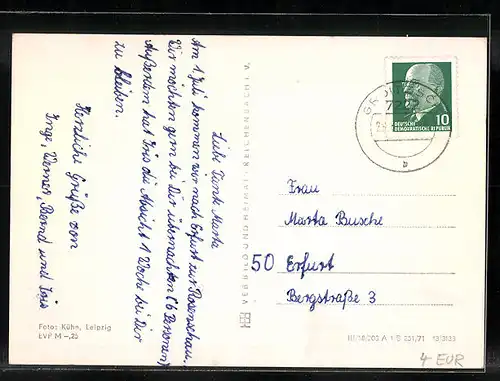 Liebe Tante Marta
Am 1. Juli kommen wir nach Erfurt zur Rosenschau.
Wir möchten gern bei Dir übernachten (6 Personen)
Außerdem hat Iris die Absicht 1 Woche bei Dir
zu bleiben.
Herzliche Grüße von
Inge, Werner, Bernd und Iris
Foto: Kühn, Leipzig
EVP M –,25
VEB BILD UND HEIMAT · REICHENBACH I. V.
10
DEUTSCHE
DEMOKRATISCHE REPUBLIK
b
Frau
Marta Busche
50 Erfurt
Bergstraße 3
4 EUR